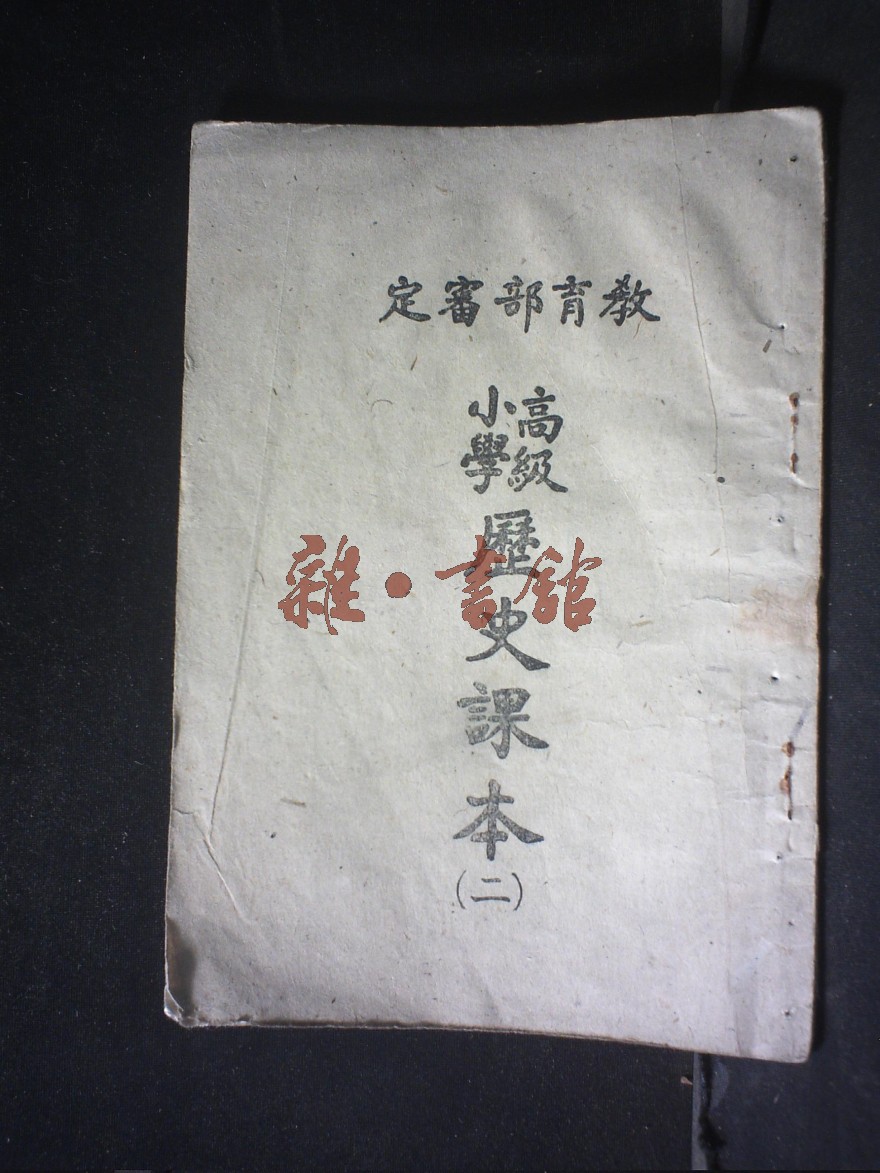 教育部審定
高級
小學
歷史課本
(二)
雜·書館